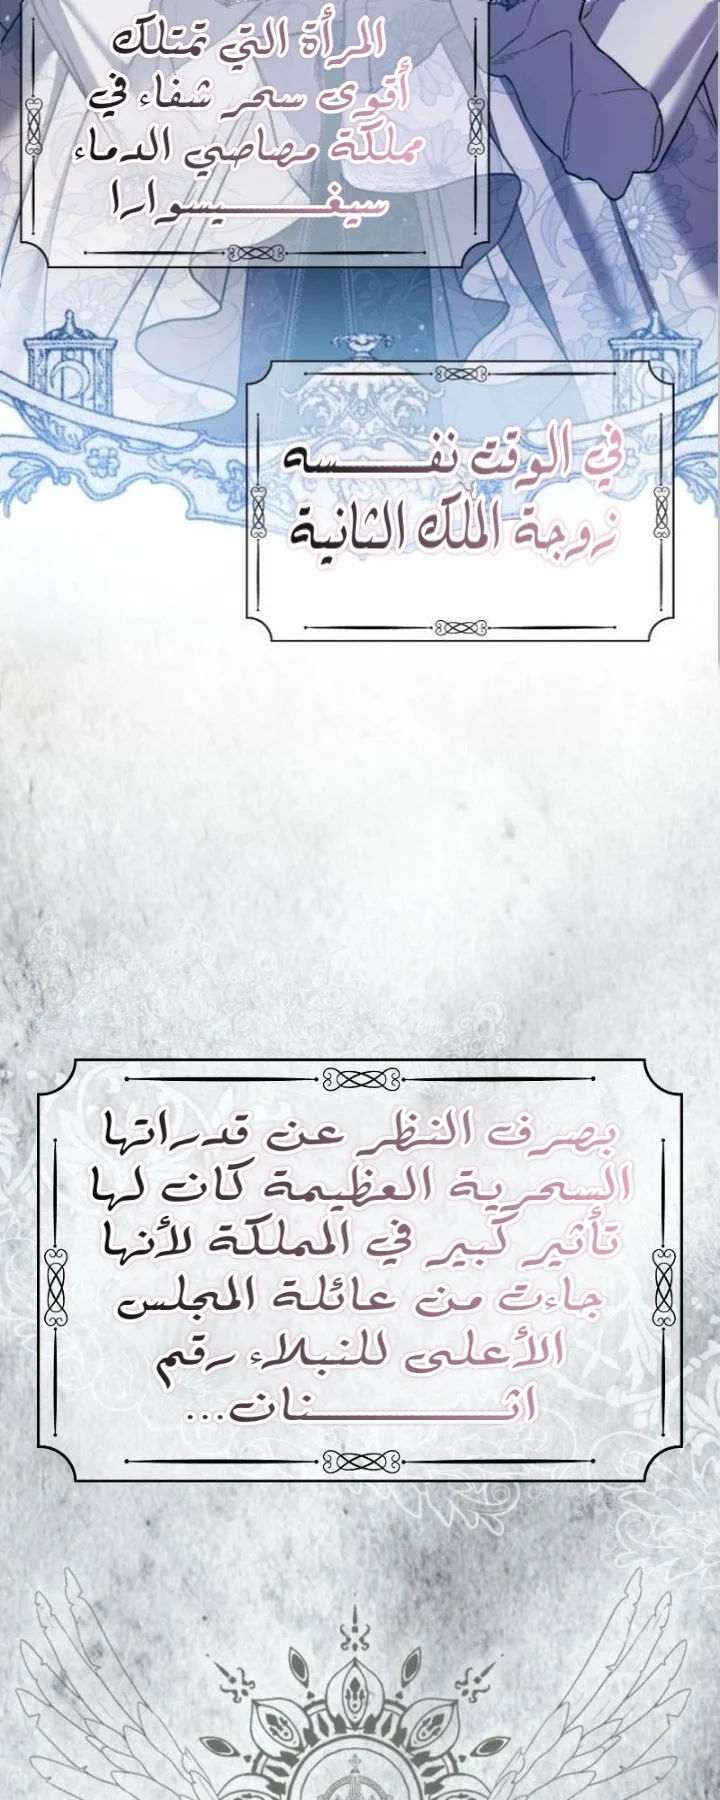 المرأة التي تمتلك
أقوى سحر شفاء في
مملكة مصاصي الدماء
سيغـــــيسوارا
في الوقت نفـــــسه
زوجة الملك الثانية
بصرف النظر عن قدراتها
السحرية العظيمة كان لها
تأثير كبير في المملكة لأنها
جاءت من عائلة المجلس
الأعلى للنبلاء رقم
اثـــــــــنان...